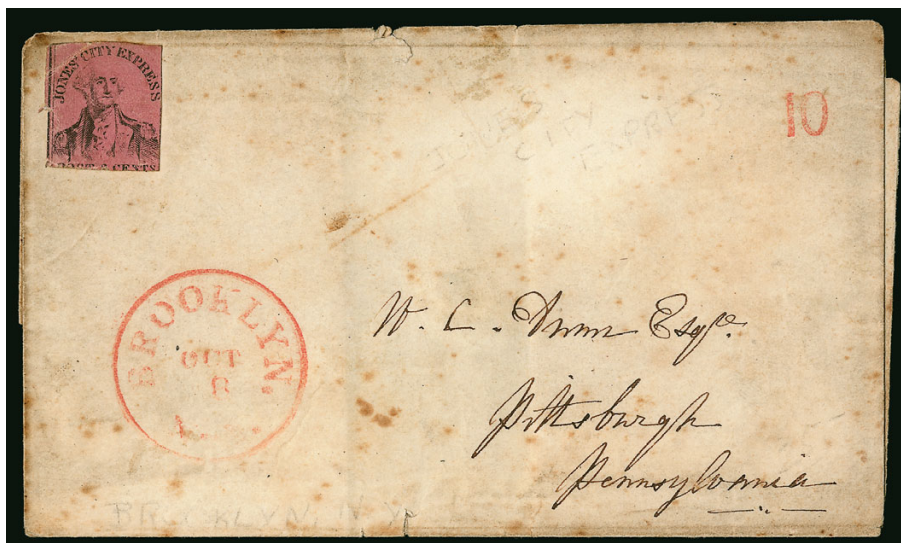 JONES' CITY EXPRESS
POST 2 CENTS
10
JONES
CITY
EXPRESS
BROOKLYN.
OCT
8
W. C. Dunn Esqr.
Pittsburgh
Pennsylvania
BROOKLYN, N.Y.